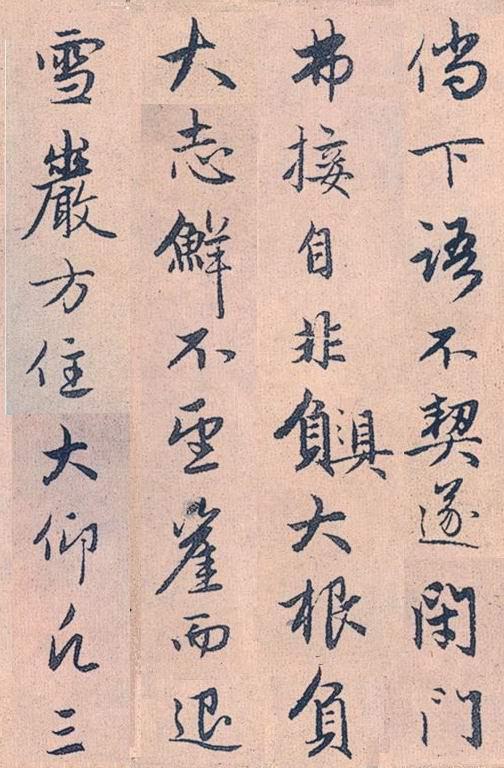 倘下語不契遂閉門
弗接自非負具大根負
大志鮮不望崖而退
雪巖方住大仰凡三